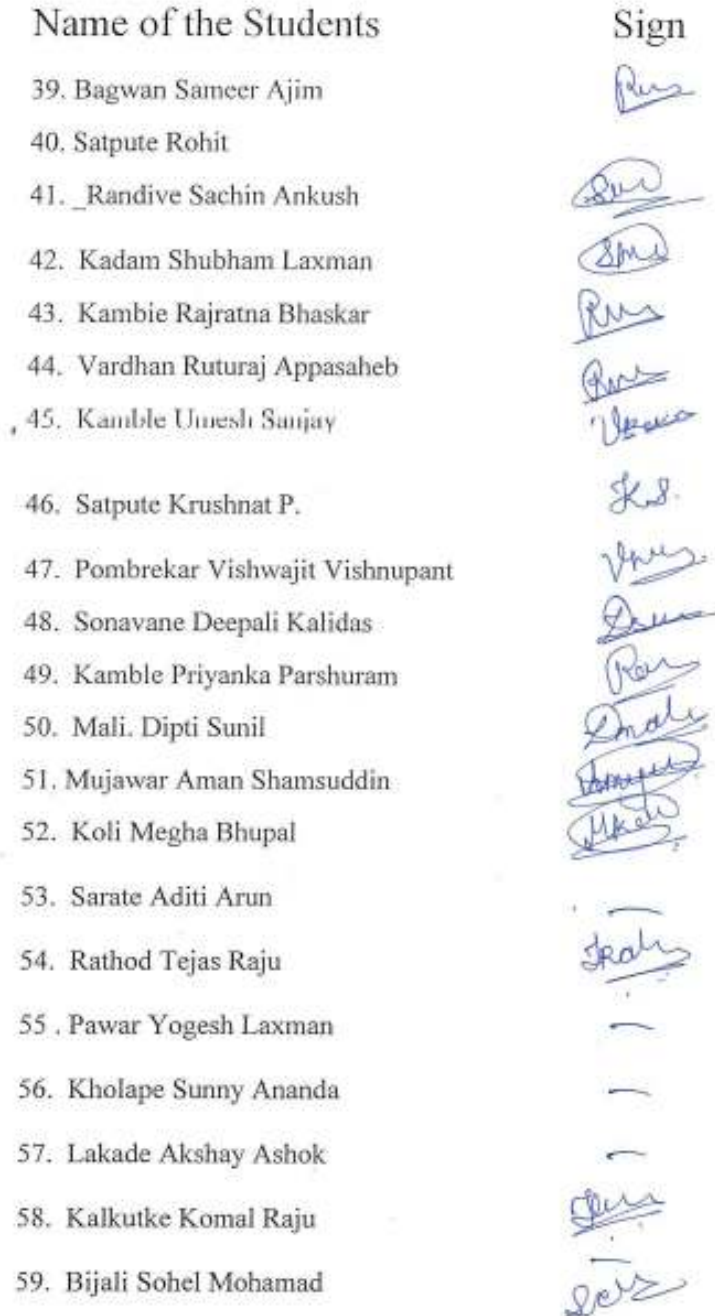 Name of the Students Sign
39. Bagwan Sameer Ajim
40. Satpute Rohit
41. _Randive Sachin Ankush
42. Kadam Shubham Laxman
43. Kambie Rajratna Bhaskar
44. Vardhan Ruturaj Appasaheb
45. Kamble Umesh Sanjay
46. Satpute Krushnat P. K.S.
47. Pombrekar Vishwajit Vishnupant
48. Sonavane Deepali Kalidas
49. Kamble Priyanka Parshuram
50. Mali. Dipti Sunil Dmali
51. Mujawar Aman Shamsuddin
52. Koli Megha Bhupal
53. Sarate Aditi Arun —
54. Rathod Tejas Raju
55 . Pawar Yogesh Laxman —
56. Kholape Sunny Ananda —
57. Lakade Akshay Ashok —
58. Kalkutke Komal Raju
59. Bijali Sohel Mohamad